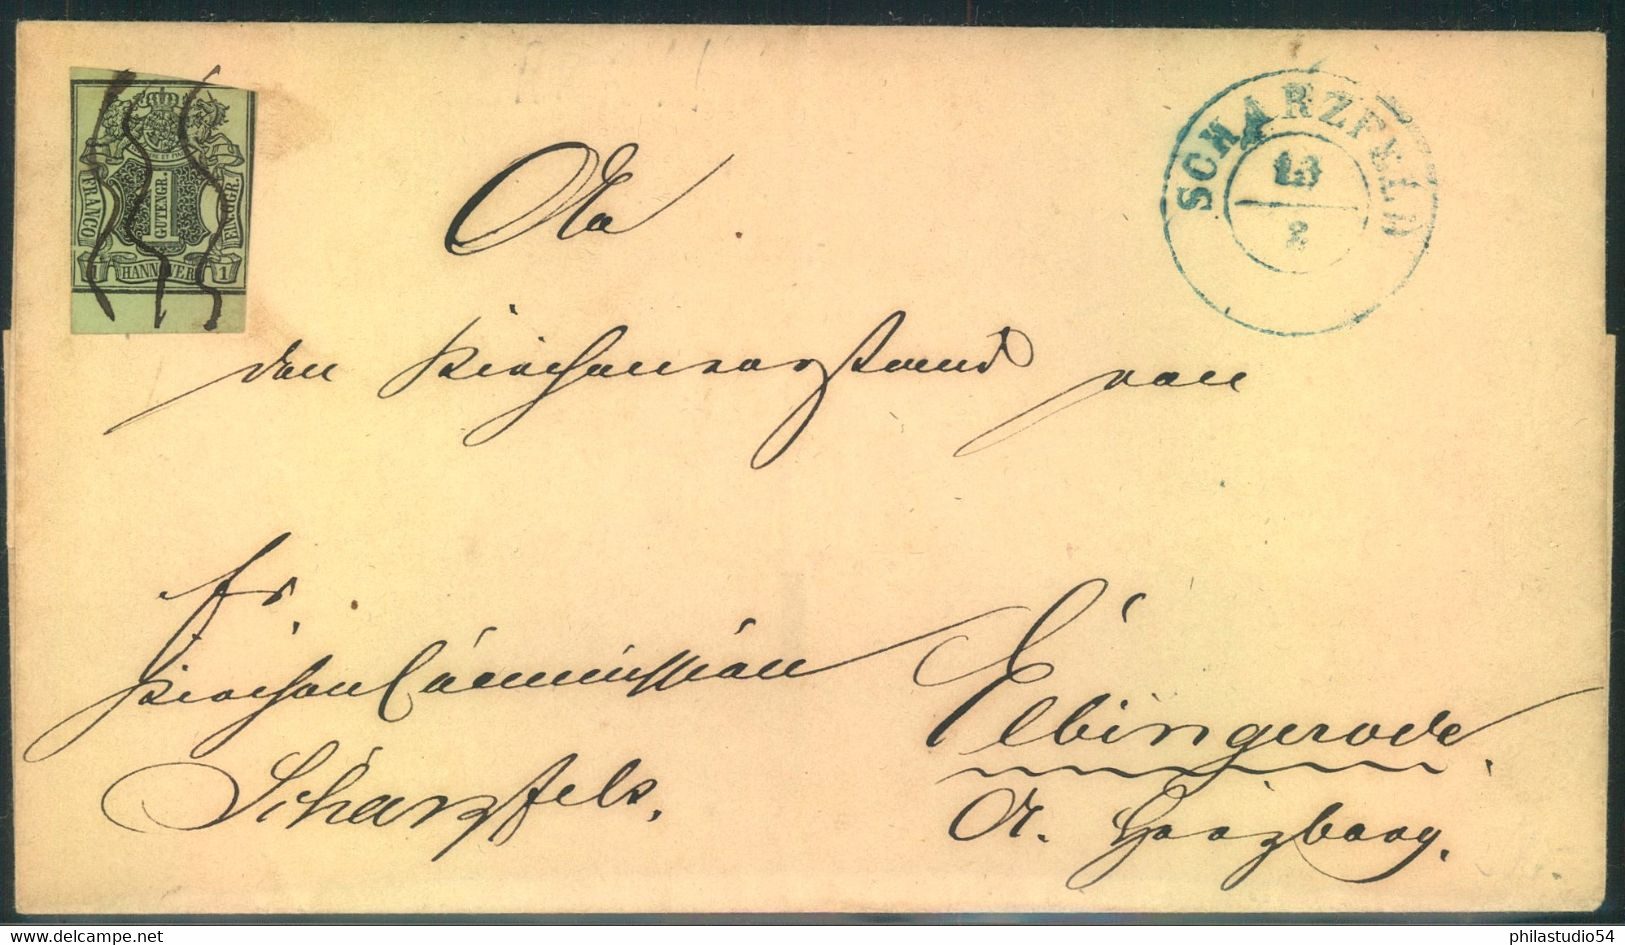 FRANCO
1 GUTENGR.
EIN GGR.
1 HANNOVER 1
SCHARZFELD
13
2
An
den Kirchenvorstand von
fr.
Kirchen Commission
Scharzfels.
Elbingerode
A. Herzberg.
delcampe.net
philastudio54